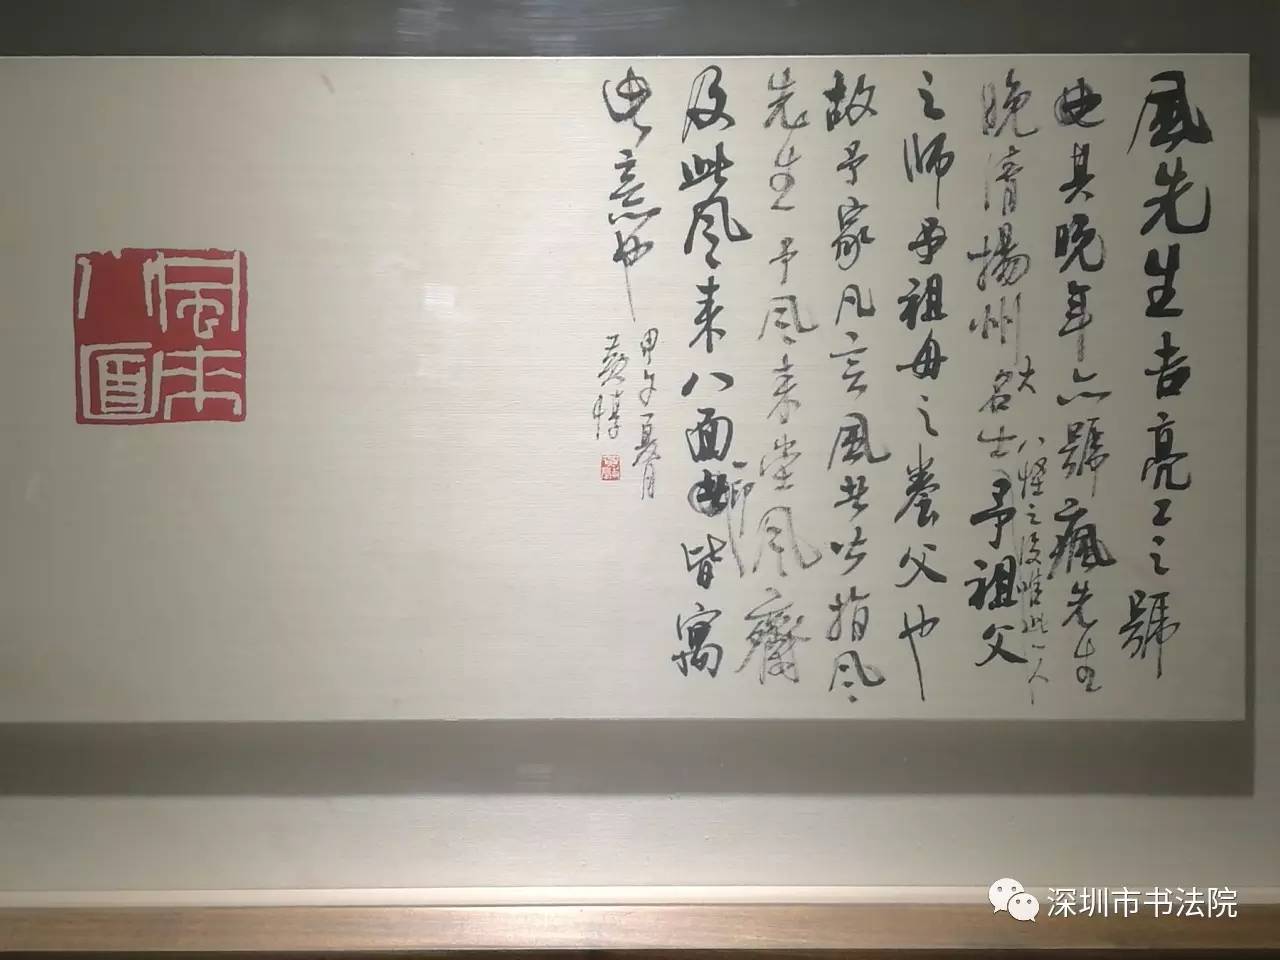 風先生吉亮工之號
也其晚年亦號瘋先生
晚清揚州大名士予祖父
八怪之後惟此一人
之師予祖母之養父也
故予家凡言風者皆指風
先生予風來堂風齋
及此風来八面一印皆寓
此意也
甲午夏月
黃惇
風来八面
深圳市书法院